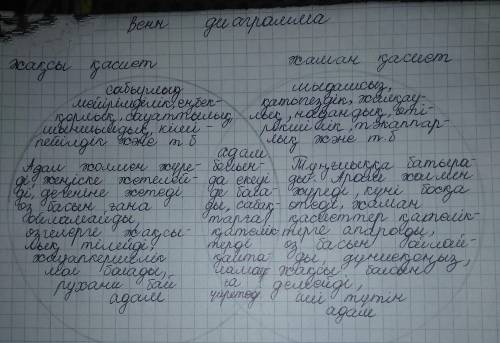 Венн диаграмма
жақсы қасиет
жаман қасиет
сабырлық
мейірімділік, еңбек-
қорлық, сауаттылық
шыншылдық, кішi-
пейілдік және т.б
мыдамсыз,
қатопездік, жалқау-
лық, надандық, өті-
рікшілік, тәкаппар-
лық және т.б
адам
Адал жолмен жүре-
ді, жеңіске жетелей-
ді, дегеніне жетеді
өз басын ғана
ойламайды,
өзгелерге жақсы-
лық тілейді,
жауапкершілік
мол болады,
рухани бай
адам
бойын-
да екеуі
де бола-
ды, сабақ-
тарға,
қателік-
терді
қайта-
ламау
ға
үйретед
Тұңғиыққа батыра-
ды. Арам жолмен
жүреді, күні босқа
өтеді, жаман
қасиеттер қателік-
терге апарады,
өз басын ойлай-
ды, дүниеқоңыз,
жақсы басын
делдейді,
иі түтін
адам